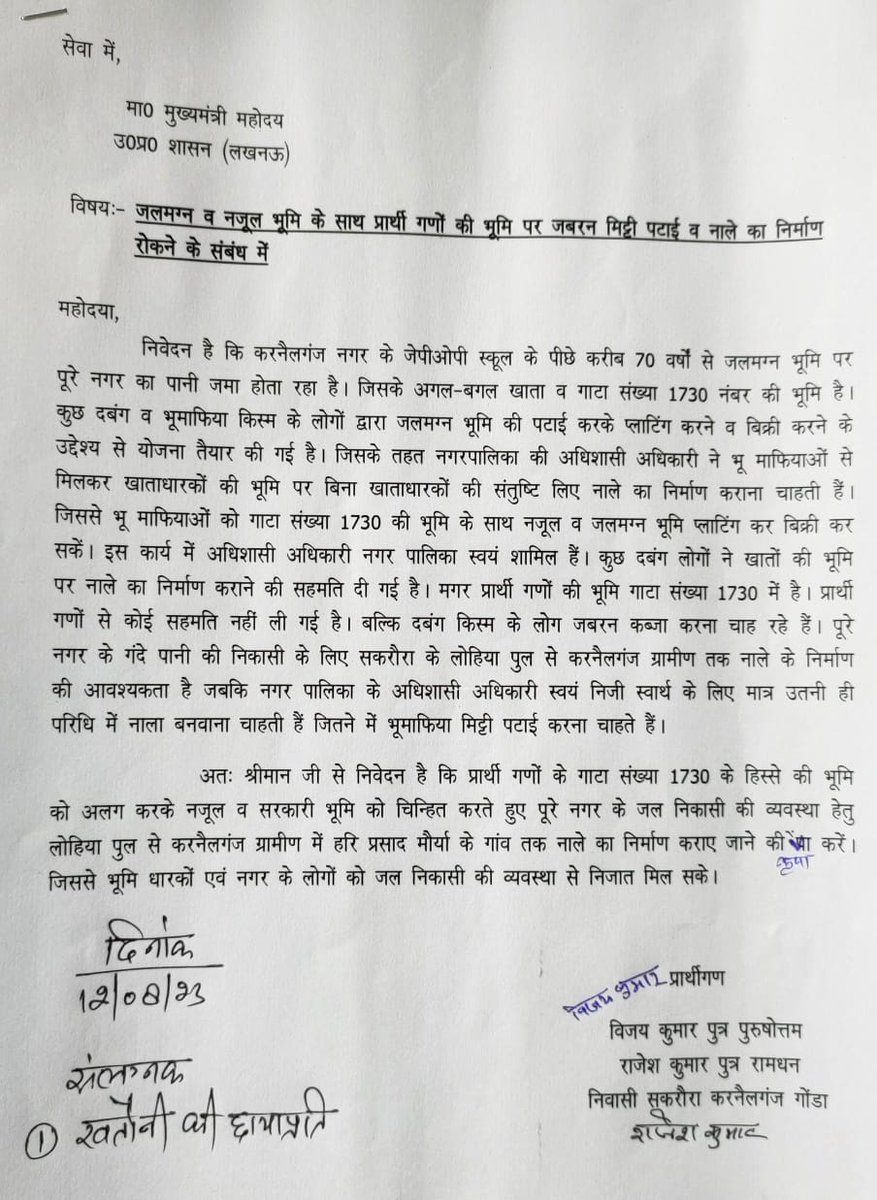 सेवा में,
मा0 मुख्यमंत्री महोदय
उ0प्र0 शासन (लखनऊ)
विषयः- जलमग्न व नजूल भूमि के साथ प्रार्थी गणों की भूमि पर जबरन मिट्टी पटाई व नाले का निर्माण
रोकने के संबंध में
महोदया,
निवेदन है कि करनैलगंज नगर के जेपीओपी स्कूल के पीछे करीब 70 वर्षों से जलमग्न भूमि पर
पूरे नगर का पानी जमा होता रहा है। जिसके अगल-बगल खाता व गाटा संख्या 1730 नंबर की भूमि है।
कुछ दबंग व भूमाफिया किस्म के लोगों द्वारा जलमग्न भूमि की पटाई करके प्लाटिंग करने व बिक्री करने के
उद्देश्य से योजना तैयार की गई है। जिसके तहत नगरपालिका की अधिशासी अधिकारी ने भू माफियाओं से
मिलकर खाताधारकों की भूमि पर बिना खाताधारकों की संतुष्टि लिए नाले का निर्माण कराना चाहती हैं।
जिससे भू माफियाओं को गाटा संख्या 1730 की भूमि के साथ नजूल व जलमग्न भूमि प्लाटिंग कर बिक्री कर
सकें। इस कार्य में अधिशासी अधिकारी नगर पालिका स्वयं शामिल हैं। कुछ दबंग लोगों ने खातों की भूमि
पर नाले का निर्माण कराने की सहमति दी गई है। मगर प्रार्थी गणों की भूमि गाटा संख्या 1730 में है। प्रार्थी
गणों से कोई सहमति नहीं ली गई है। बल्कि दबंग किस्म के लोग जबरन कब्जा करना चाह रहे हैं। पूरे
नगर के गंदे पानी की निकासी के लिए सकरौरा के लोहिया पुल से करनैलगंज ग्रामीण तक नाले के निर्माण
की आवश्यकता है जबकि नगर पालिका के अधिशासी अधिकारी स्वयं निजी स्वार्थ के लिए मात्र उतनी ही
परिधि में नाला बनवाना चाहती हैं जितने में भूमाफिया मिट्टी पटाई करना चाहते हैं।
अतः श्रीमान जी से निवेदन है कि प्रार्थी गणों के गाटा संख्या 1730 के हिस्से की भूमि
को अलग करके नजूल व सरकारी भूमि को चिन्हित करते हुए पूरे नगर के जल निकासी की व्यवस्था हेतु
लोहिया पुल से करनैलगंज ग्रामीण में हरि प्रसाद मौर्या के गांव तक नाले का निर्माण कराए जाने की करें।
कृपा
जिससे भूमि धारकों एवं नगर के लोगों को जल निकासी की व्यवस्था से निजात मिल सके।
दिनांक
12/08/23
विजय कुमार प्रार्थीगण
विजय कुमार पुत्र पुरुषोत्तम
राजेश कुमार पुत्र रामधन
निवासी सुकरौरा करनैलगंज गोंडा
राजेश कुमार
संलग्नक
① खतौनी की छायाप्रति